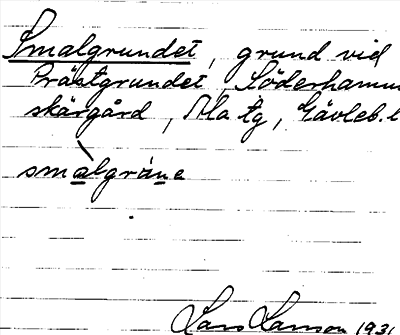 Smalgrundet, grund vid
Prästgrundet, Söderhamns
skärgård, Ala tg, Gävleb. l
smàlgräne
Lars Larsson 1931